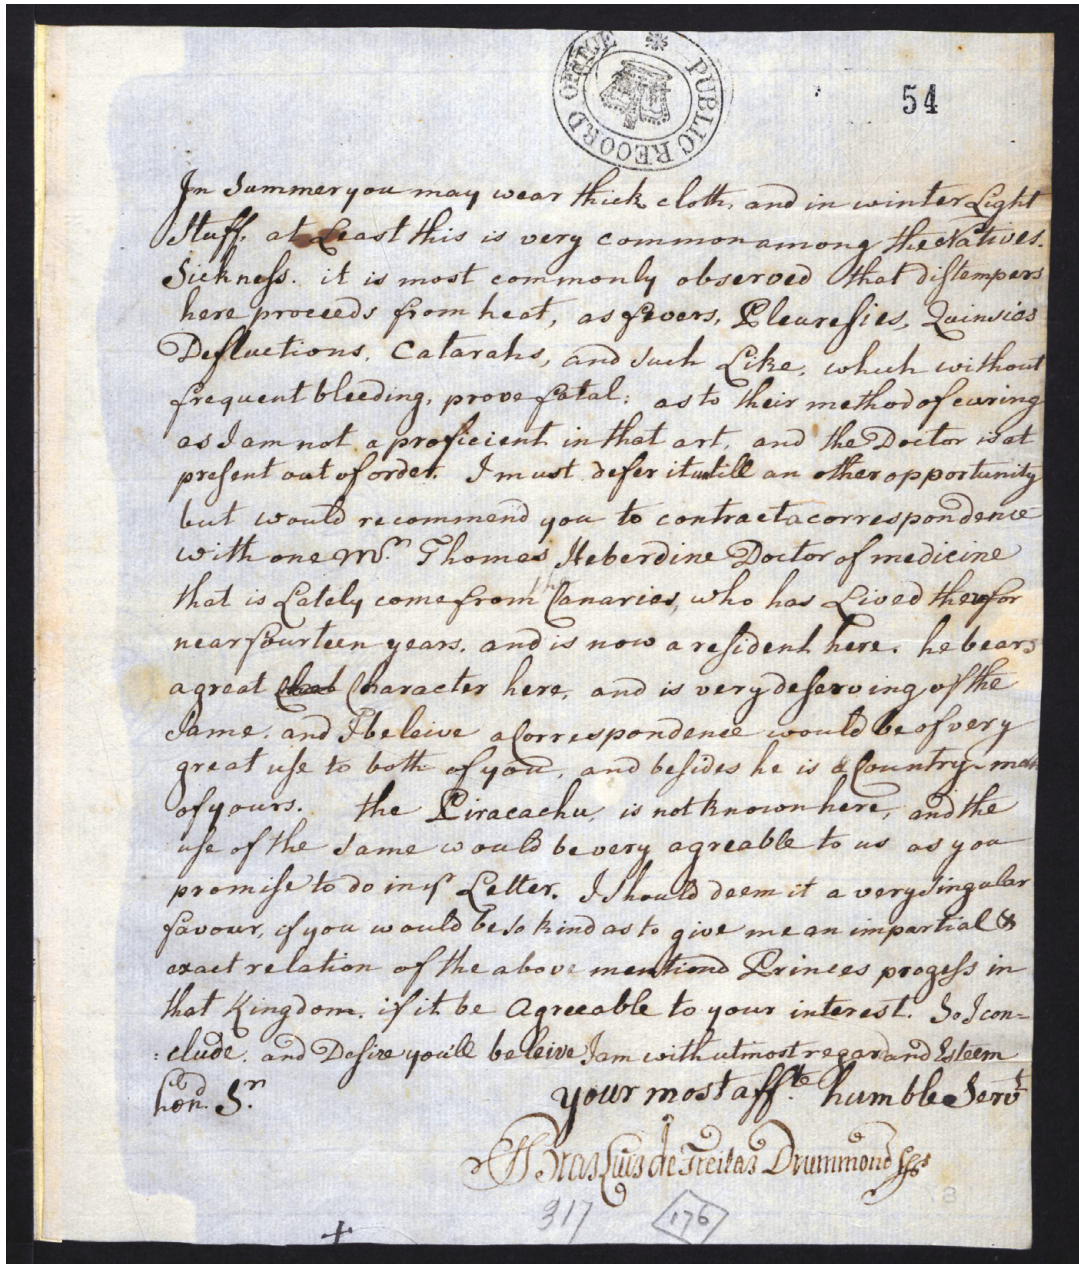 PUBLIC RECORD OFFICE
54
In Summer you may wear thick cloth, and in winter Light
Stuff, at Least this is very common among the Natives.
Sickness. it is most commonly observed that distempers
here proceeds from heat, as fevers, Pleuresies, Quinsies
Defluctions, Catarahs, and such Like, which without
frequent bleeding, prove fatal; as to their method of curing
as I am not a proficient in that art, and the Doctor is at
present out of order. I must defer it untill an other opportunity
but would recommend you to contract a correspondence
with one Mr. Thomas Heberdine Doctor of medicine
that is Lately come from the Canaries, who has Lived there for
near fourteen years. and is now a resident here. he bears
a great Character here, and is very deserving of the
Same. and I beleive a Correspondence would be of very
great use to both of you, and besides he is a Country-man
of yours. the Piracachu, is not known here, and the
use of the Same would be very agreable to us as you
promise to do in yr Letter. I Should deem it a very Singular
favour, if you would be So kind as to give me an impartial &
exact relation of the above mentiond Princes progess in
that Kingdom, if it be Agreeable to your interest. So I con=
:clude. and Desire you'll beleive I am with utmost regard and Esteem
hond. Sr. your most afft.te humble Servt
Bras Luis de Freitas Drummond
317 176
78